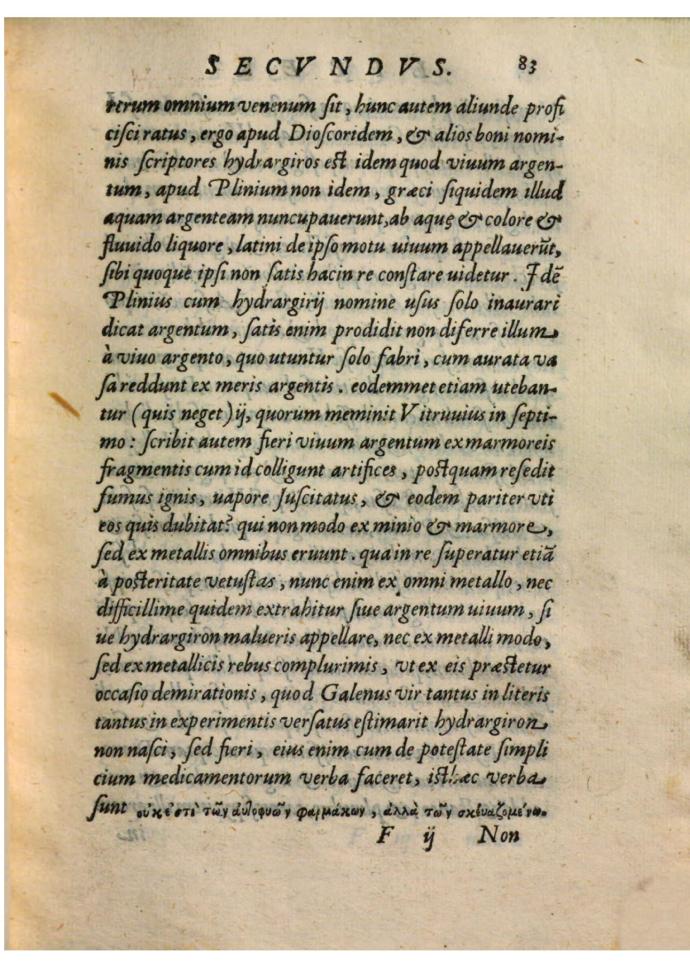 SECVNDVS. 83
rerum omnium venenum ſit, hunc autem aliunde profi
ciſci ratus, ergo apud Dioſcoridem, & alios boni nomi-
nis ſcriptores hydrargiros eſt idem quod viuum argen-
tum, apud Plinium non idem, græci ſiquidem illud
aquam argenteam nuncupauerunt, ab aquę & colore &
fluuido liquore, latini de ipſo motu uiuum appellauerũt,
ſibi quoque ipſi non ſatis hac in re conſtare uidetur. Idẽ
Plinius cum hydrargirij nomine uſus ſolo inaurari
dicat argentum, ſatis enim prodidit non diferre illum
à viuo argento, quo utuntur ſolo fabri, cum aurata va
ſa reddunt ex meris argentis. eodemmet etiam uteban-
tur (quis neget) ij, quorum meminit Vitruuius in ſepti-
mo: ſcribit autem fieri viuum argentum ex marmoreis
fragmentis cum id colligunt artifices, poſtquam reſedit
fumus ignis, uapore ſuſcitatus, & eodem pariter vti
eos quis dubitat? qui non modo ex minio & marmore,
ſed ex metallis omnibus eruunt. qua in re ſuperatur etiã
à poſteritate vetuſtas, nunc enim ex omni metallo, nec
difficillime quidem extrahitur ſiue argentum uiuum, ſi
ue hydrargiron malueris appellare, nec ex metalli modo,
ſed ex metallicis rebus complurimis, vt ex eis præſtetur
occaſio demirationis, quod Galenus vir tantus in literis
tantus in experimentis verſatus eſtimarit hydrargiron
non naſci, ſed fieri, eius enim cum de poteſtate ſimpli
cium medicamentorum verba faceret, iſthæc verba
ſunt οὐκ ἐστὶ τῶν αὐτοφυῶν φαρμάκων, ἀλλὰ τῶν σκευαζομένων.
F ij Non